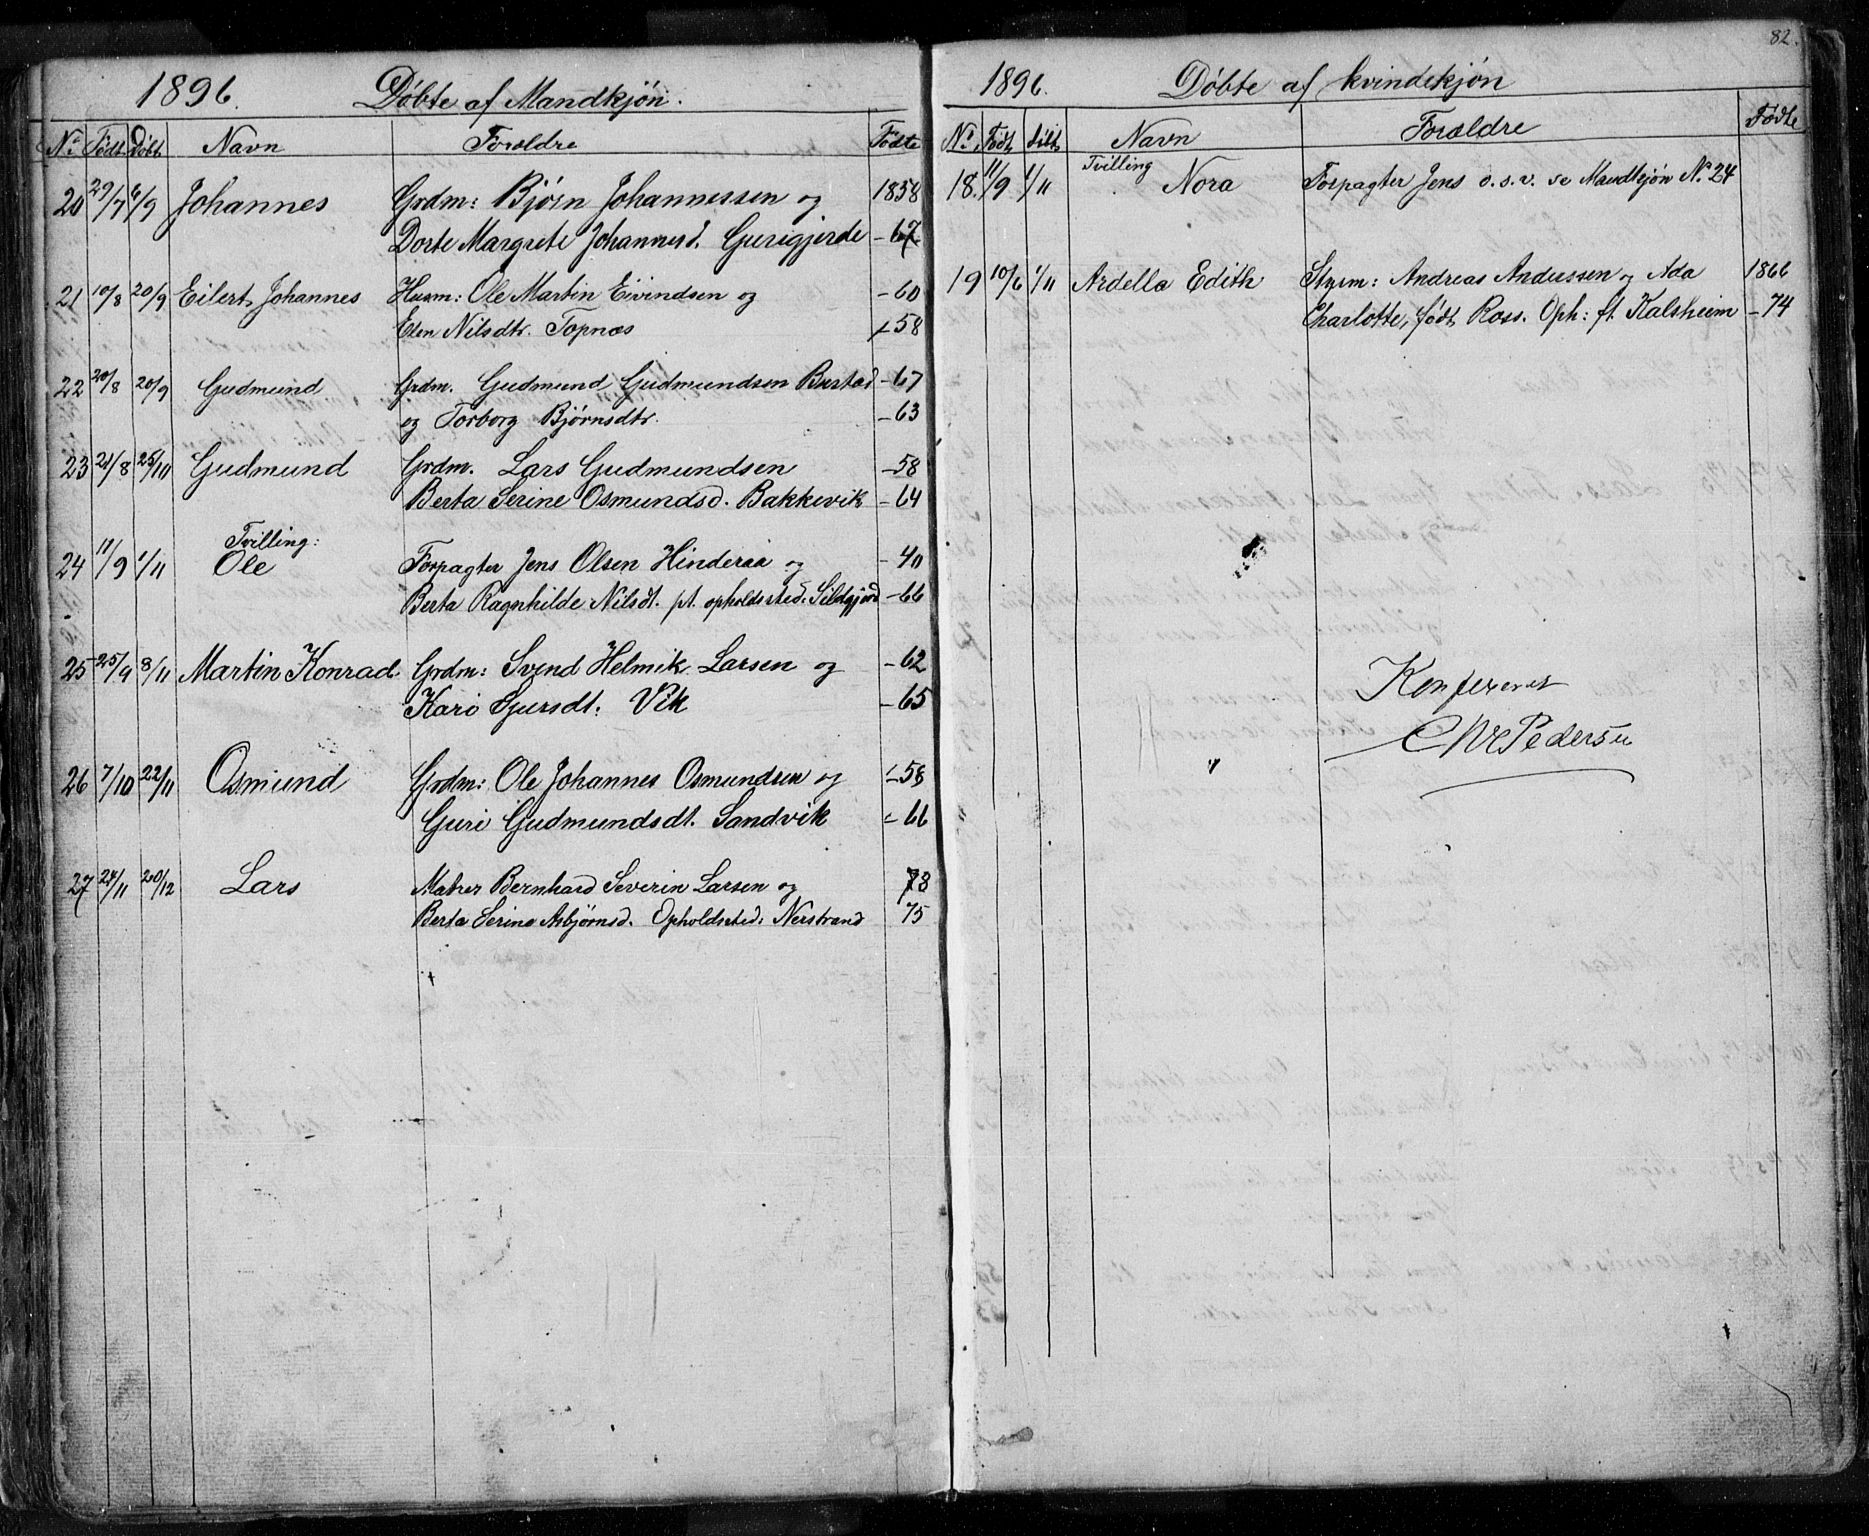 1896. Døbte af Mandkjøn.
No. Født Døbt Navn Forældre Fødte
20 29/7 6/9 Johannes Grdm: Bjørn Johannessen og 1858
Dorte Margrete Johannesd. Gurigjerde -67
21 10/8 20/9 Eilert Johannes Husm: Ole Martin Eivindsen og -60
Elen Nilsdtr. Topnæs -58
22 20/8 20/9 Gudmund Grdm. Gudmund Gudmundsen Bustad -67
og Torborg Bjørnsdtr. -63
23 21/8 25/10 Gudmund Grdm. Lars Gudmundsen -58
Berta Serine Osmundsd. Bakkevik -64
Tvilling:
24 11/9 1/11 Ole Forpagter Jens Olsen Hinderaa og -40
Berta Ragnhilde Nilsdt. pt. opholdssted: Sildgjerd -66
25 25/9 8/11 Martin Konrad Grdm: Svend Helmik Larsen og -62
Kari Sjursdt. Vik -65
26 7/10 22/11 Osmund Grdm: Ole Johannes Osmundsen og -58
Guri Gudmundsdt. Sandvik -66
27 24/11 20/12 Lars Matros Bernhard Severin Larsen og 73
Berta Serine Asbjørnsd. Opholdssted: Nerstrand 75
82.
1896. Døbte af kvindekjøn
No. Født Døbt Navn Forældre Fødte
Tvilling
18. 11/9 1/11 Nora Forpagter Jens o.s.v. se Mandkjøn No. 24
19 10/6 1/11 Ardella Edith Styrm: Andreas Andersen og Ada 1866
Charlotte, født Ross. Oph: pt. Kalsheim -74
Konfereret
Pedersen